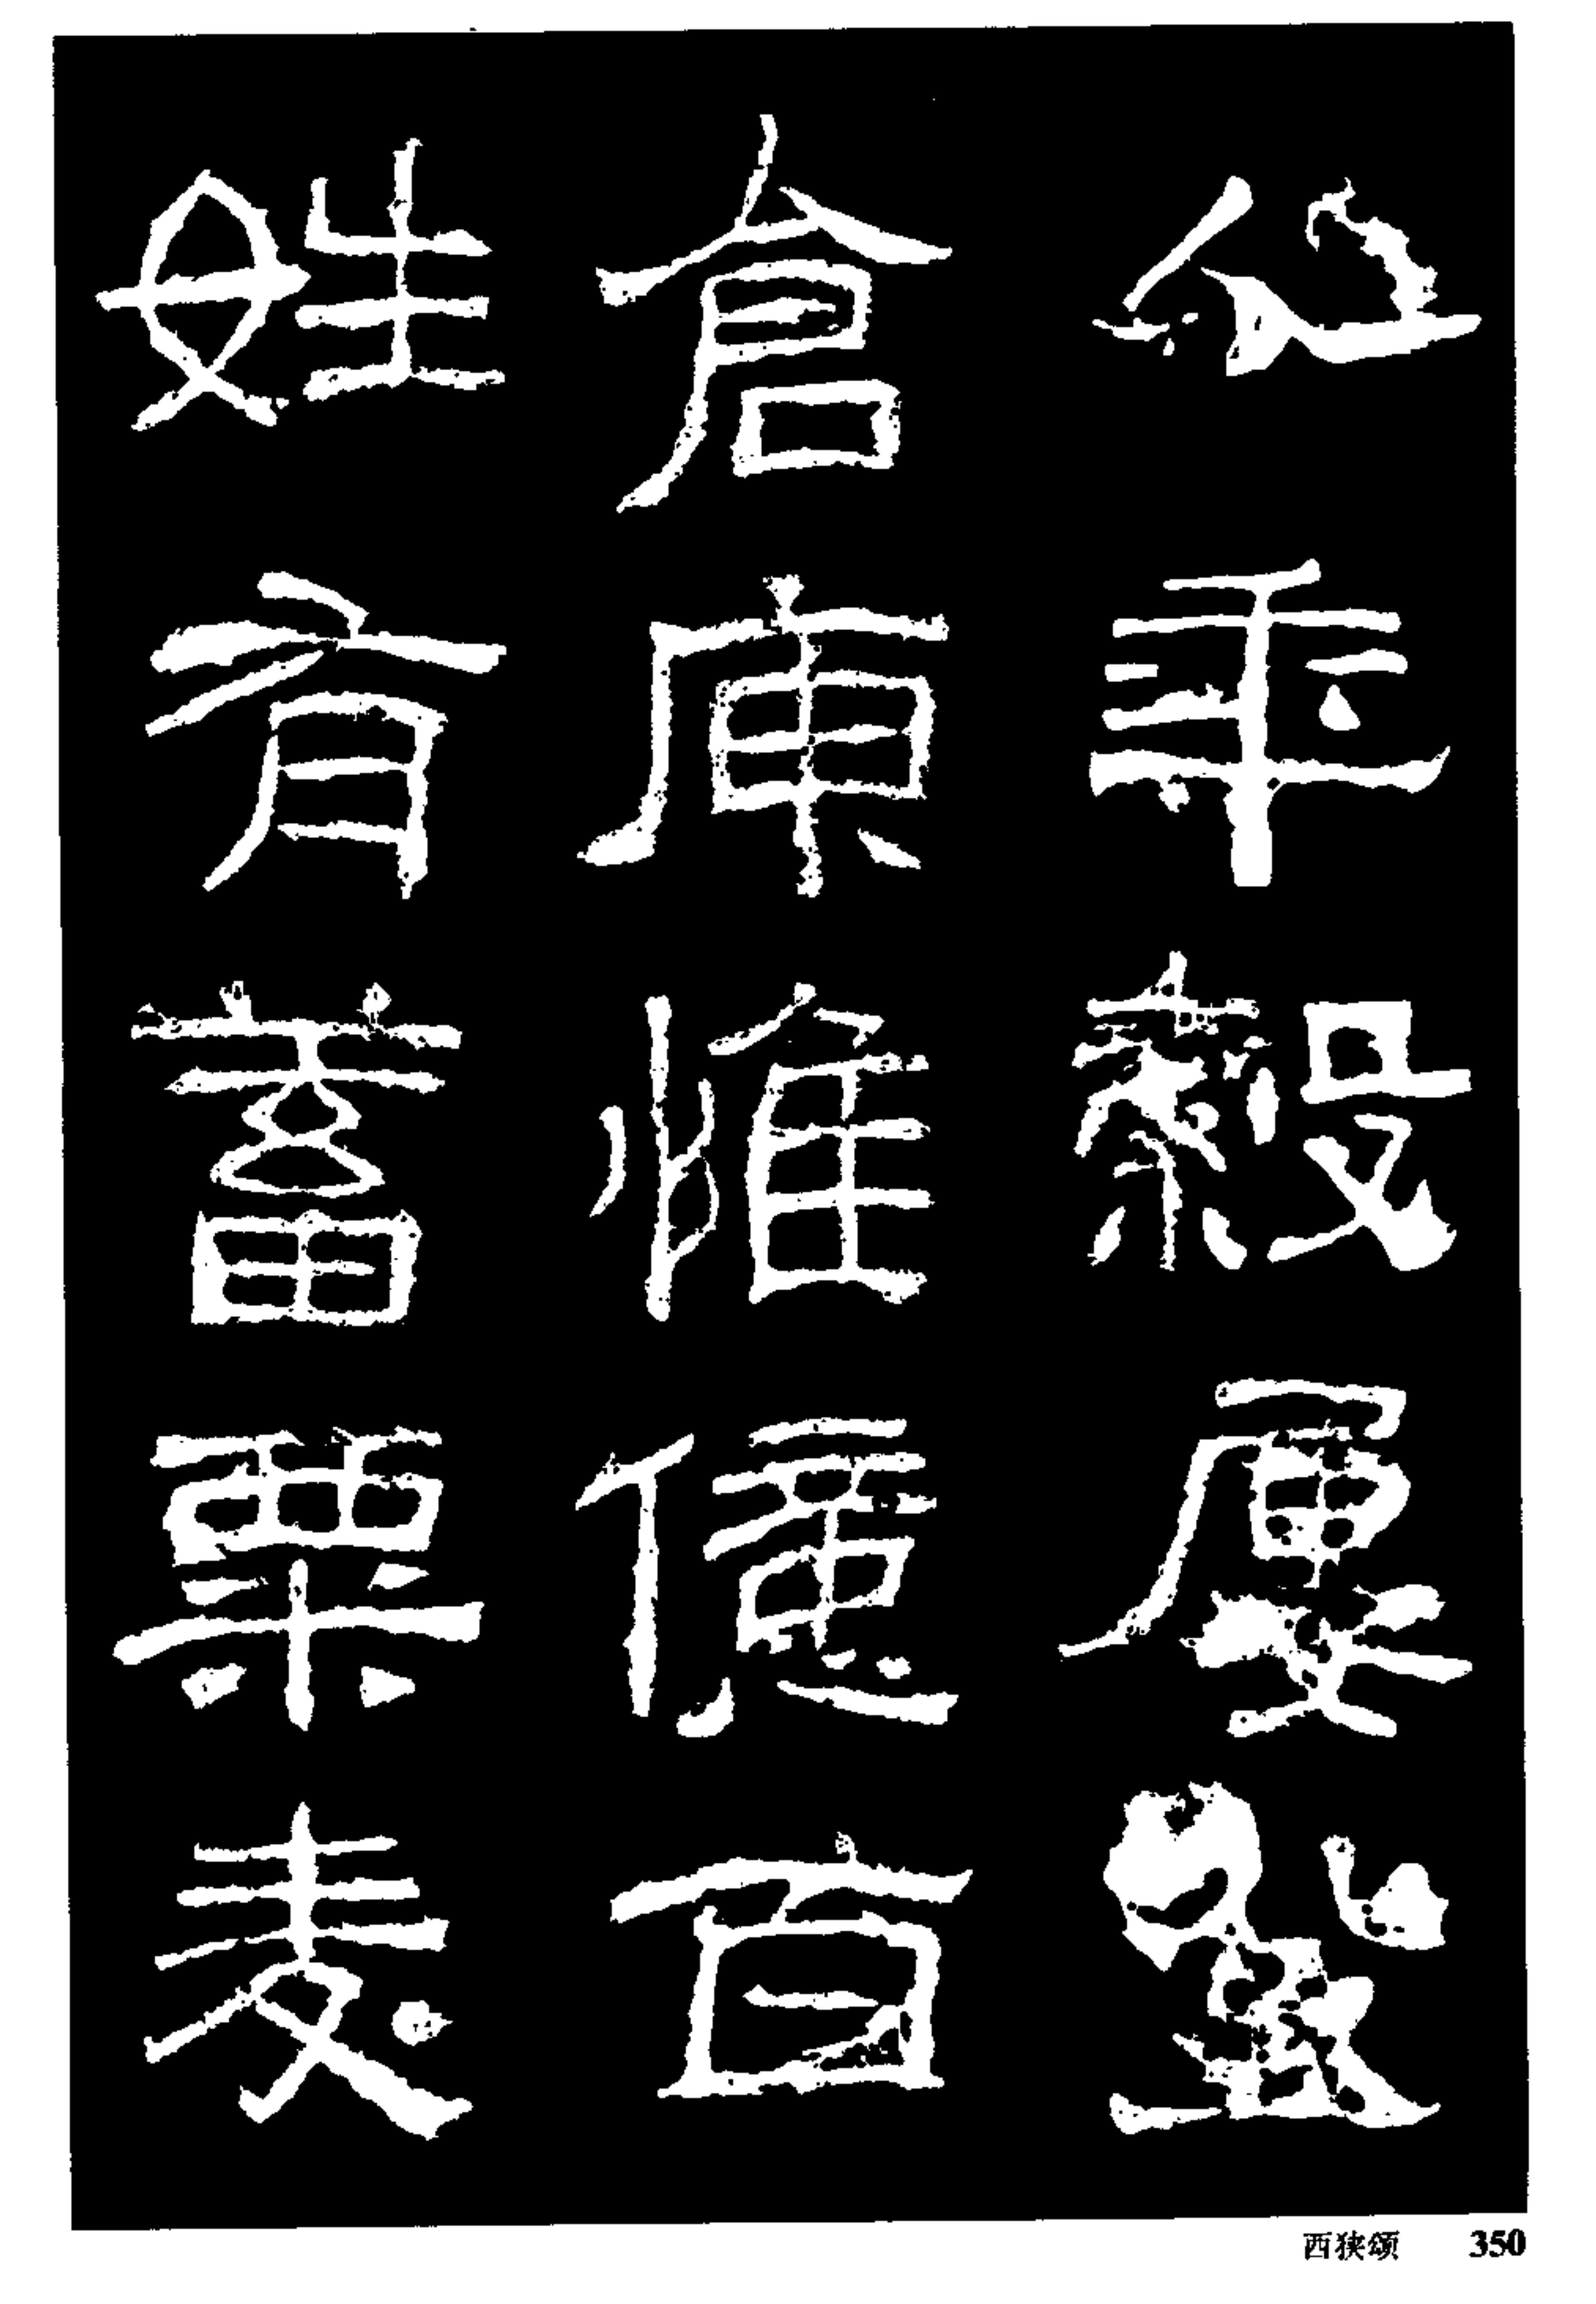 年穀屢登
倉庾惟億百
姓有蓄粟麦
西狭颂 350